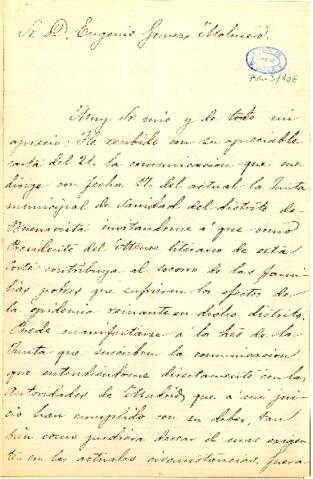 Sr. D. Eugenio Gomez Molinero.
Muy Sr mio y de todo mi
aprecio: He recibido con su apreciable
carta del 21. la comunicacion que me
dirige con fecha 17. del actual la Junta
municipal de Sanidad del distrito de
Buenavista invitandome a que como
Presidente del Ateneo literario de esta
Corte contribuya al socorro de las fami
lias pobres que sufrieren los efectos de
la epidemia reinante en dicho distrito.
Puede manifestarse a los Sres de la
Junta que suscriben la comunicacion
que entendiendome directamente con las
Autoridades de Madrid, que a mi jui
cio han cumplido con su deber, tam
bien como pudiera desear el mas exigen
te en las actuales circunstancias, fuera